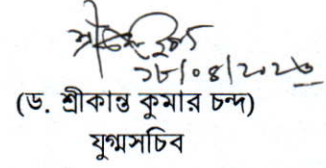 ১৮/০৪/২০২৩
(ড. শ্রীকান্ত কুমার চন্দ)
যুগ্মসচিব